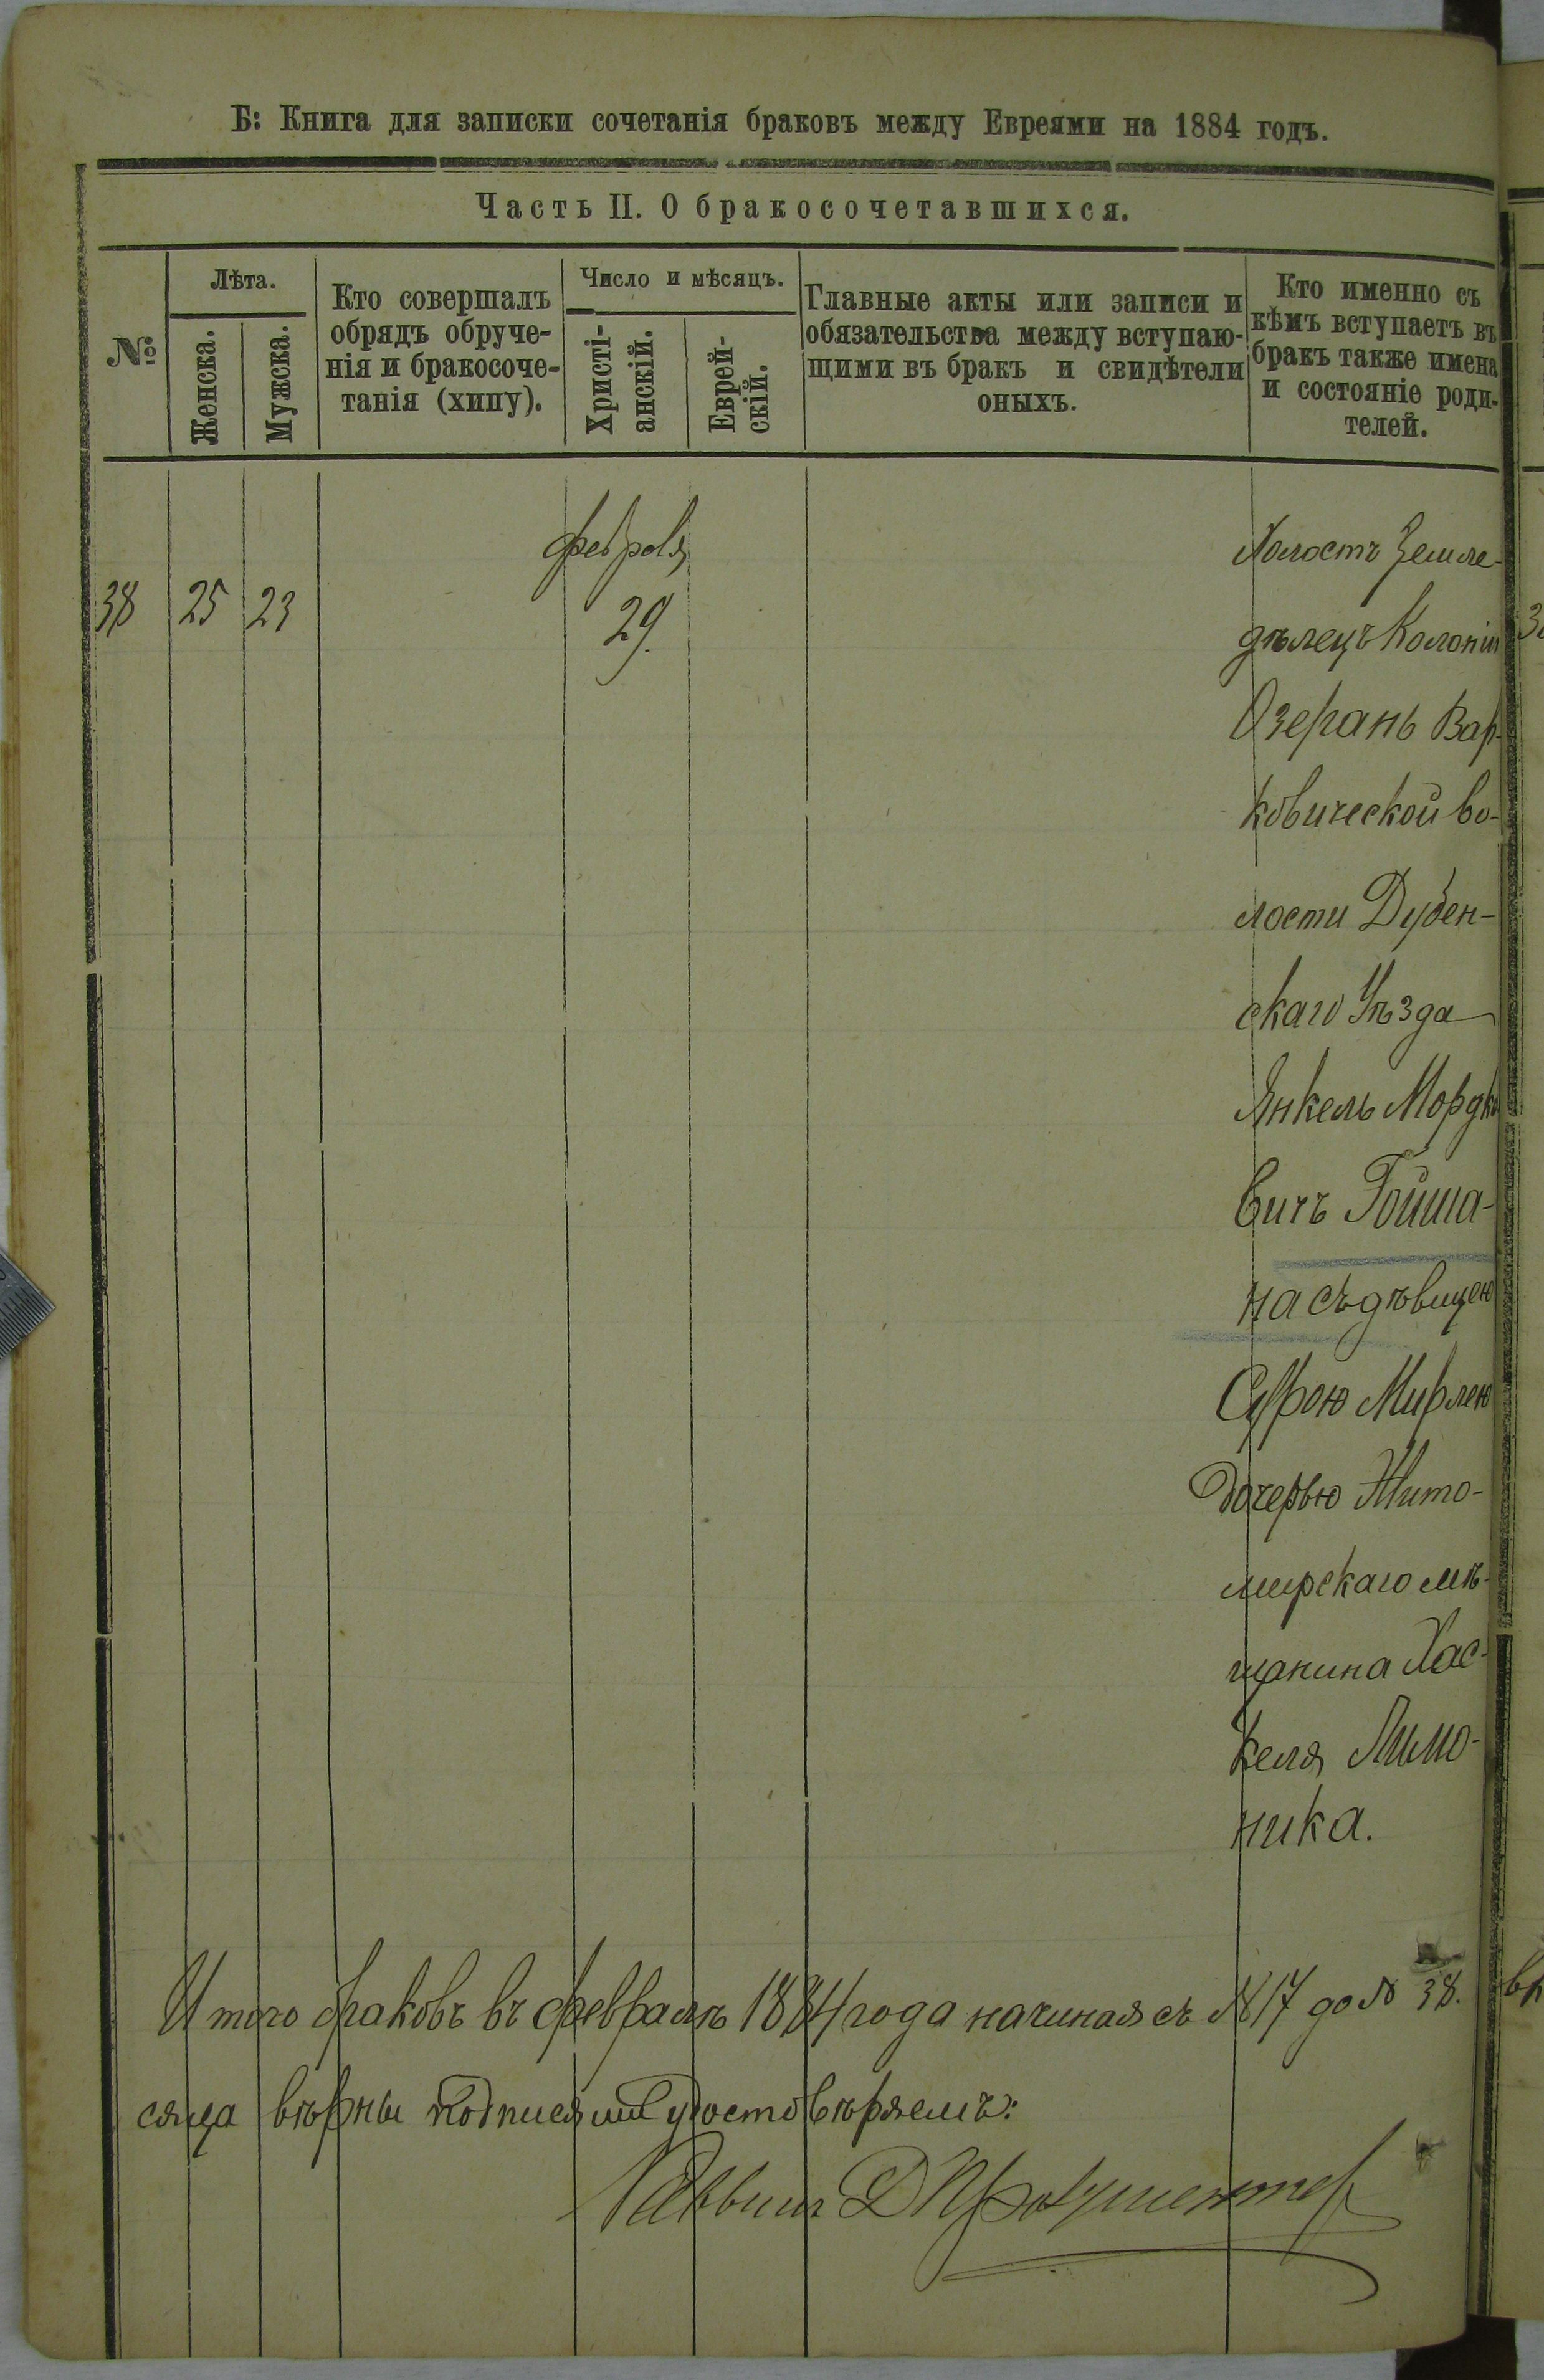 Б: Книга для записки сочетанія браковъ между Евреями на 1884 годъ.
Часть II. О бракосочетавшихся.
№
Лѣта.
Женска.
Мужска.
Кто совершалъ
обрядъ обруче-
нія и бракосоче-
танія (хипу).
Число и мѣсяцъ.
Христі-
анскій.
Еврей-
скій.
Главные акты или записи и
обязательства между вступаю-
щими въ бракъ и свидѣтели
оныхъ.
Кто именно съ
кѣмъ вступаетъ въ
бракъ также имена
и состояніе роди-
телей.
38 25 23
29.
Холостъ Земле-
дѣлецъ Колоніи
Озерань Вар-
ковической во-
лости Дубен-
скаго Уѣзда
Янкель Мордко
вичъ Гойша-
на съ дѣвицею
Сурою Мирлею
дочерью Жито-
мирскаго мѣ-
щанина Хас-
келя Лимо-
ника.
Итого браковъ въ февралѣ 1884 года начиная съ №17 до № 38.
сяца вѣрны подписями удостовѣряемъ:
Раввинъ Д